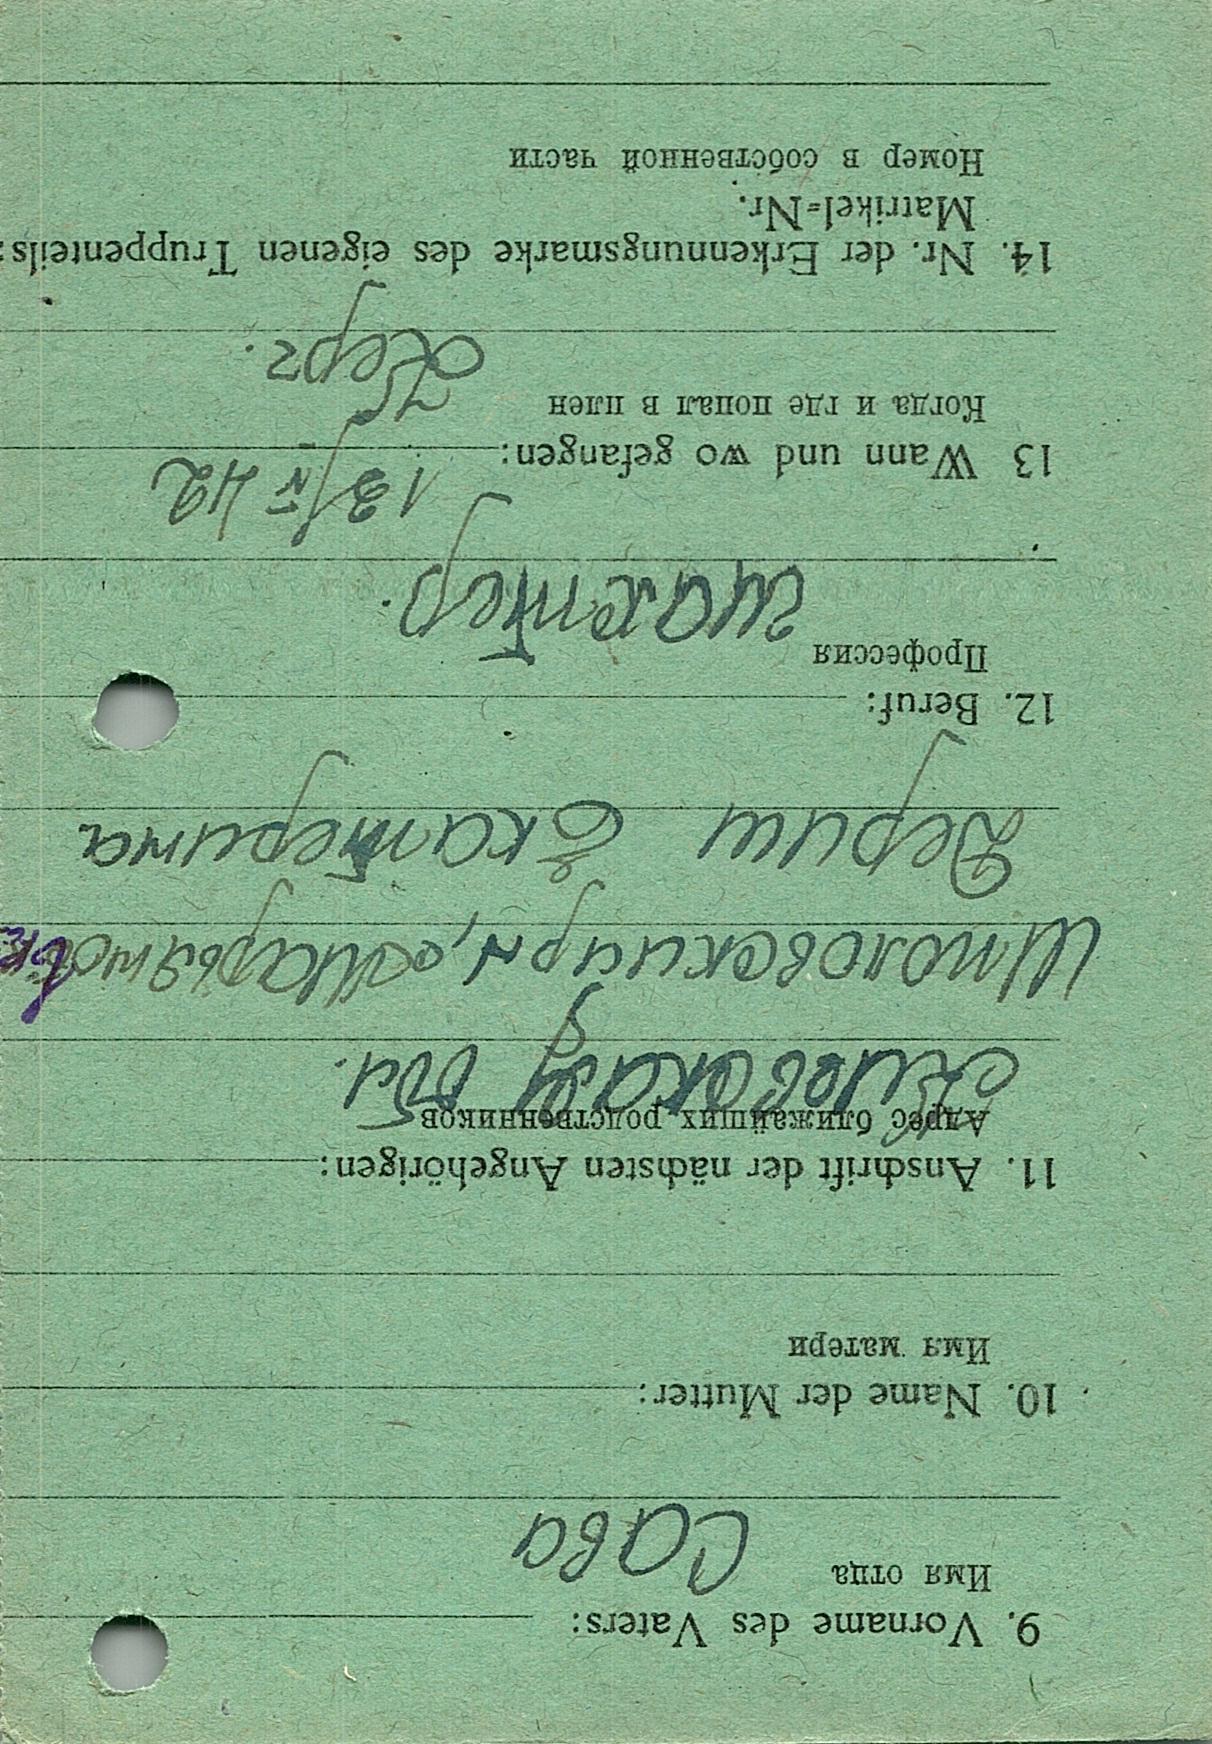 9. Vorname des Vaters:
Имя отца
Сава
10. Name der Mutter:
Имя матери
11. Anschrift der nächsten Angehörigen:
Адрес ближайших родственников
Шполовски р-н,
Дериш Екатерина
12. Beruf:
Профессия
шахтер.
13 Wann und wo gefangen:
13/V 42
Когда и где попал в плен
Керч.
14. Nr. der Erkennungsmarke des eigenen Truppenteils:
Matrikel=Nr.
Номер в собственной части